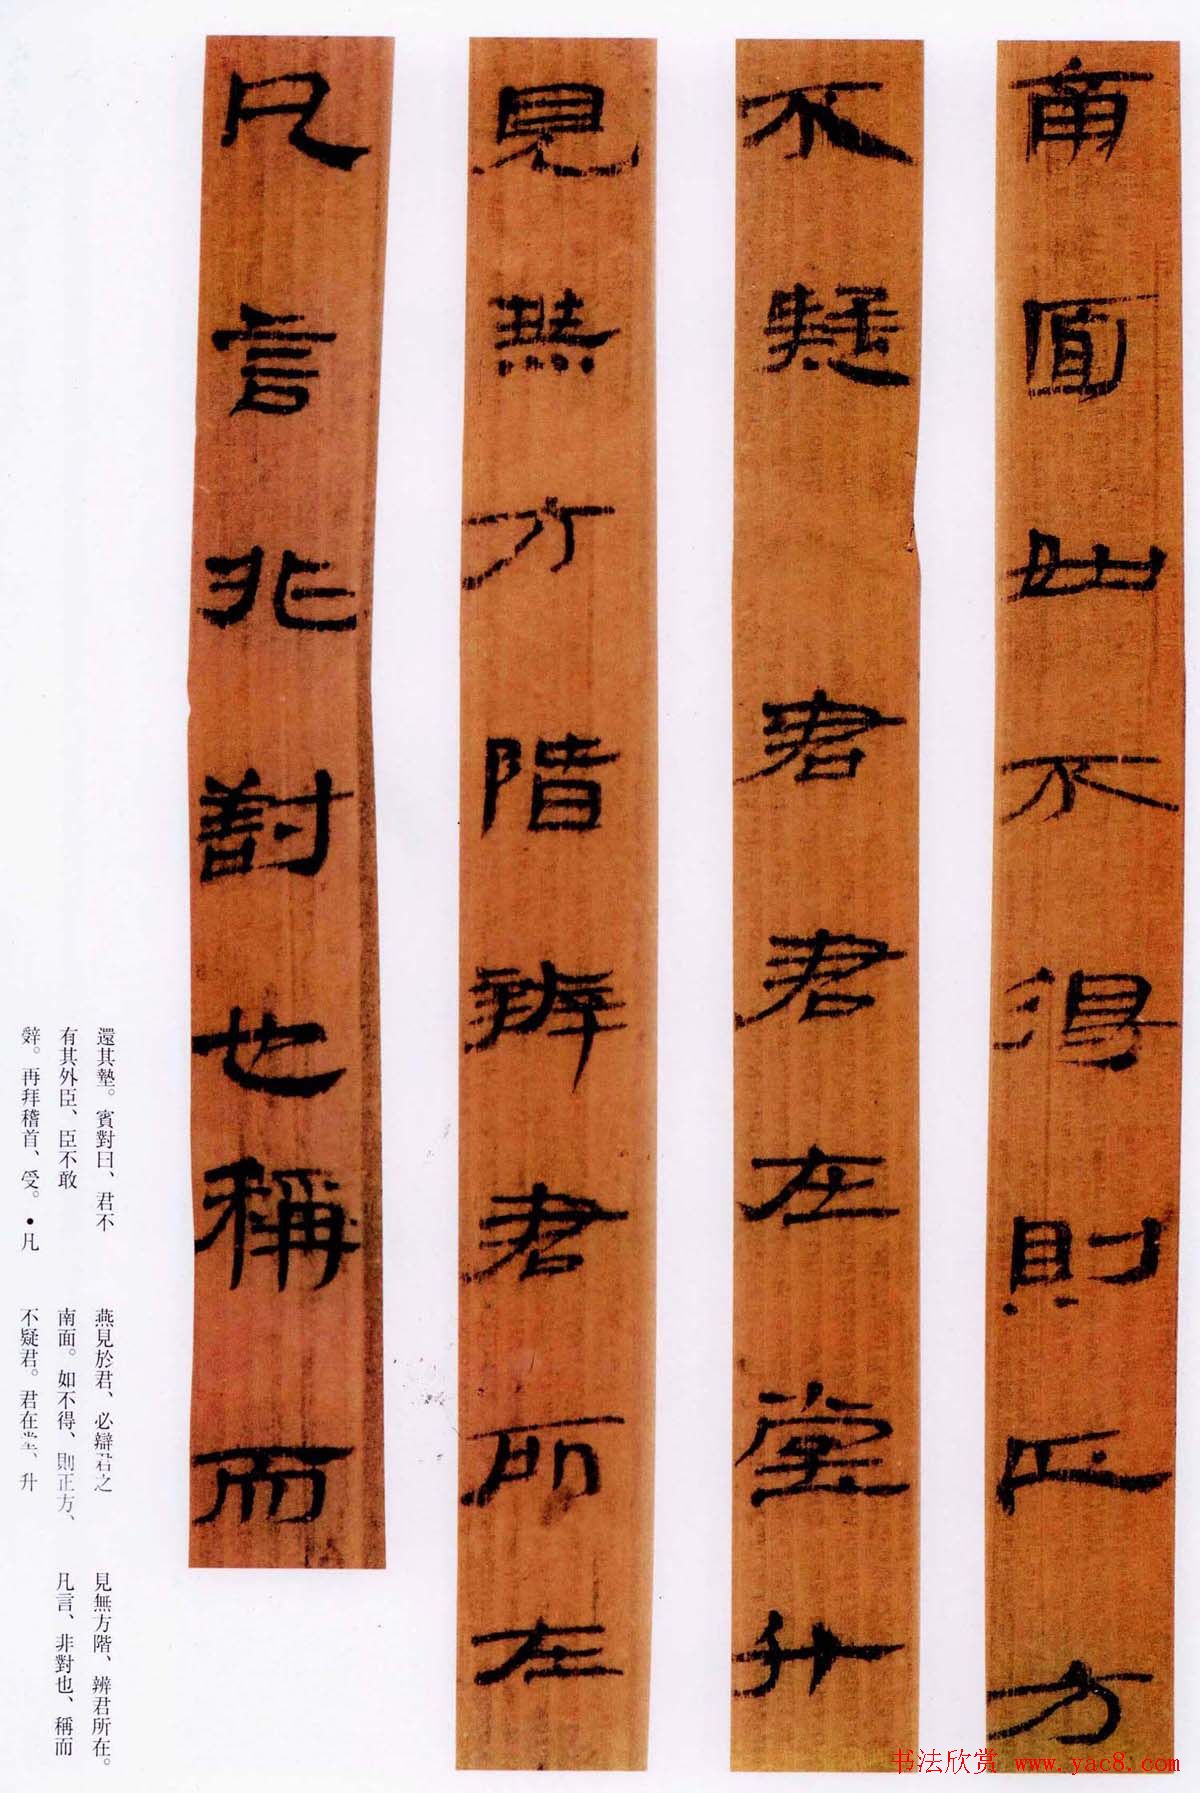 南面如不得則正方
不疑君君在堂升
見無方階辨君所在
凡言非對也稱而
還其墊。賓對曰、君不
有其外臣、臣不敢
辤。再拜稽首、受。•凡
燕見於君、必辯君之
南面。如不得、則正方、
不疑君。君在堂、升
見無方階、辨君所在。
凡言、非對也、稱而
书法欣赏 www.yac8.com